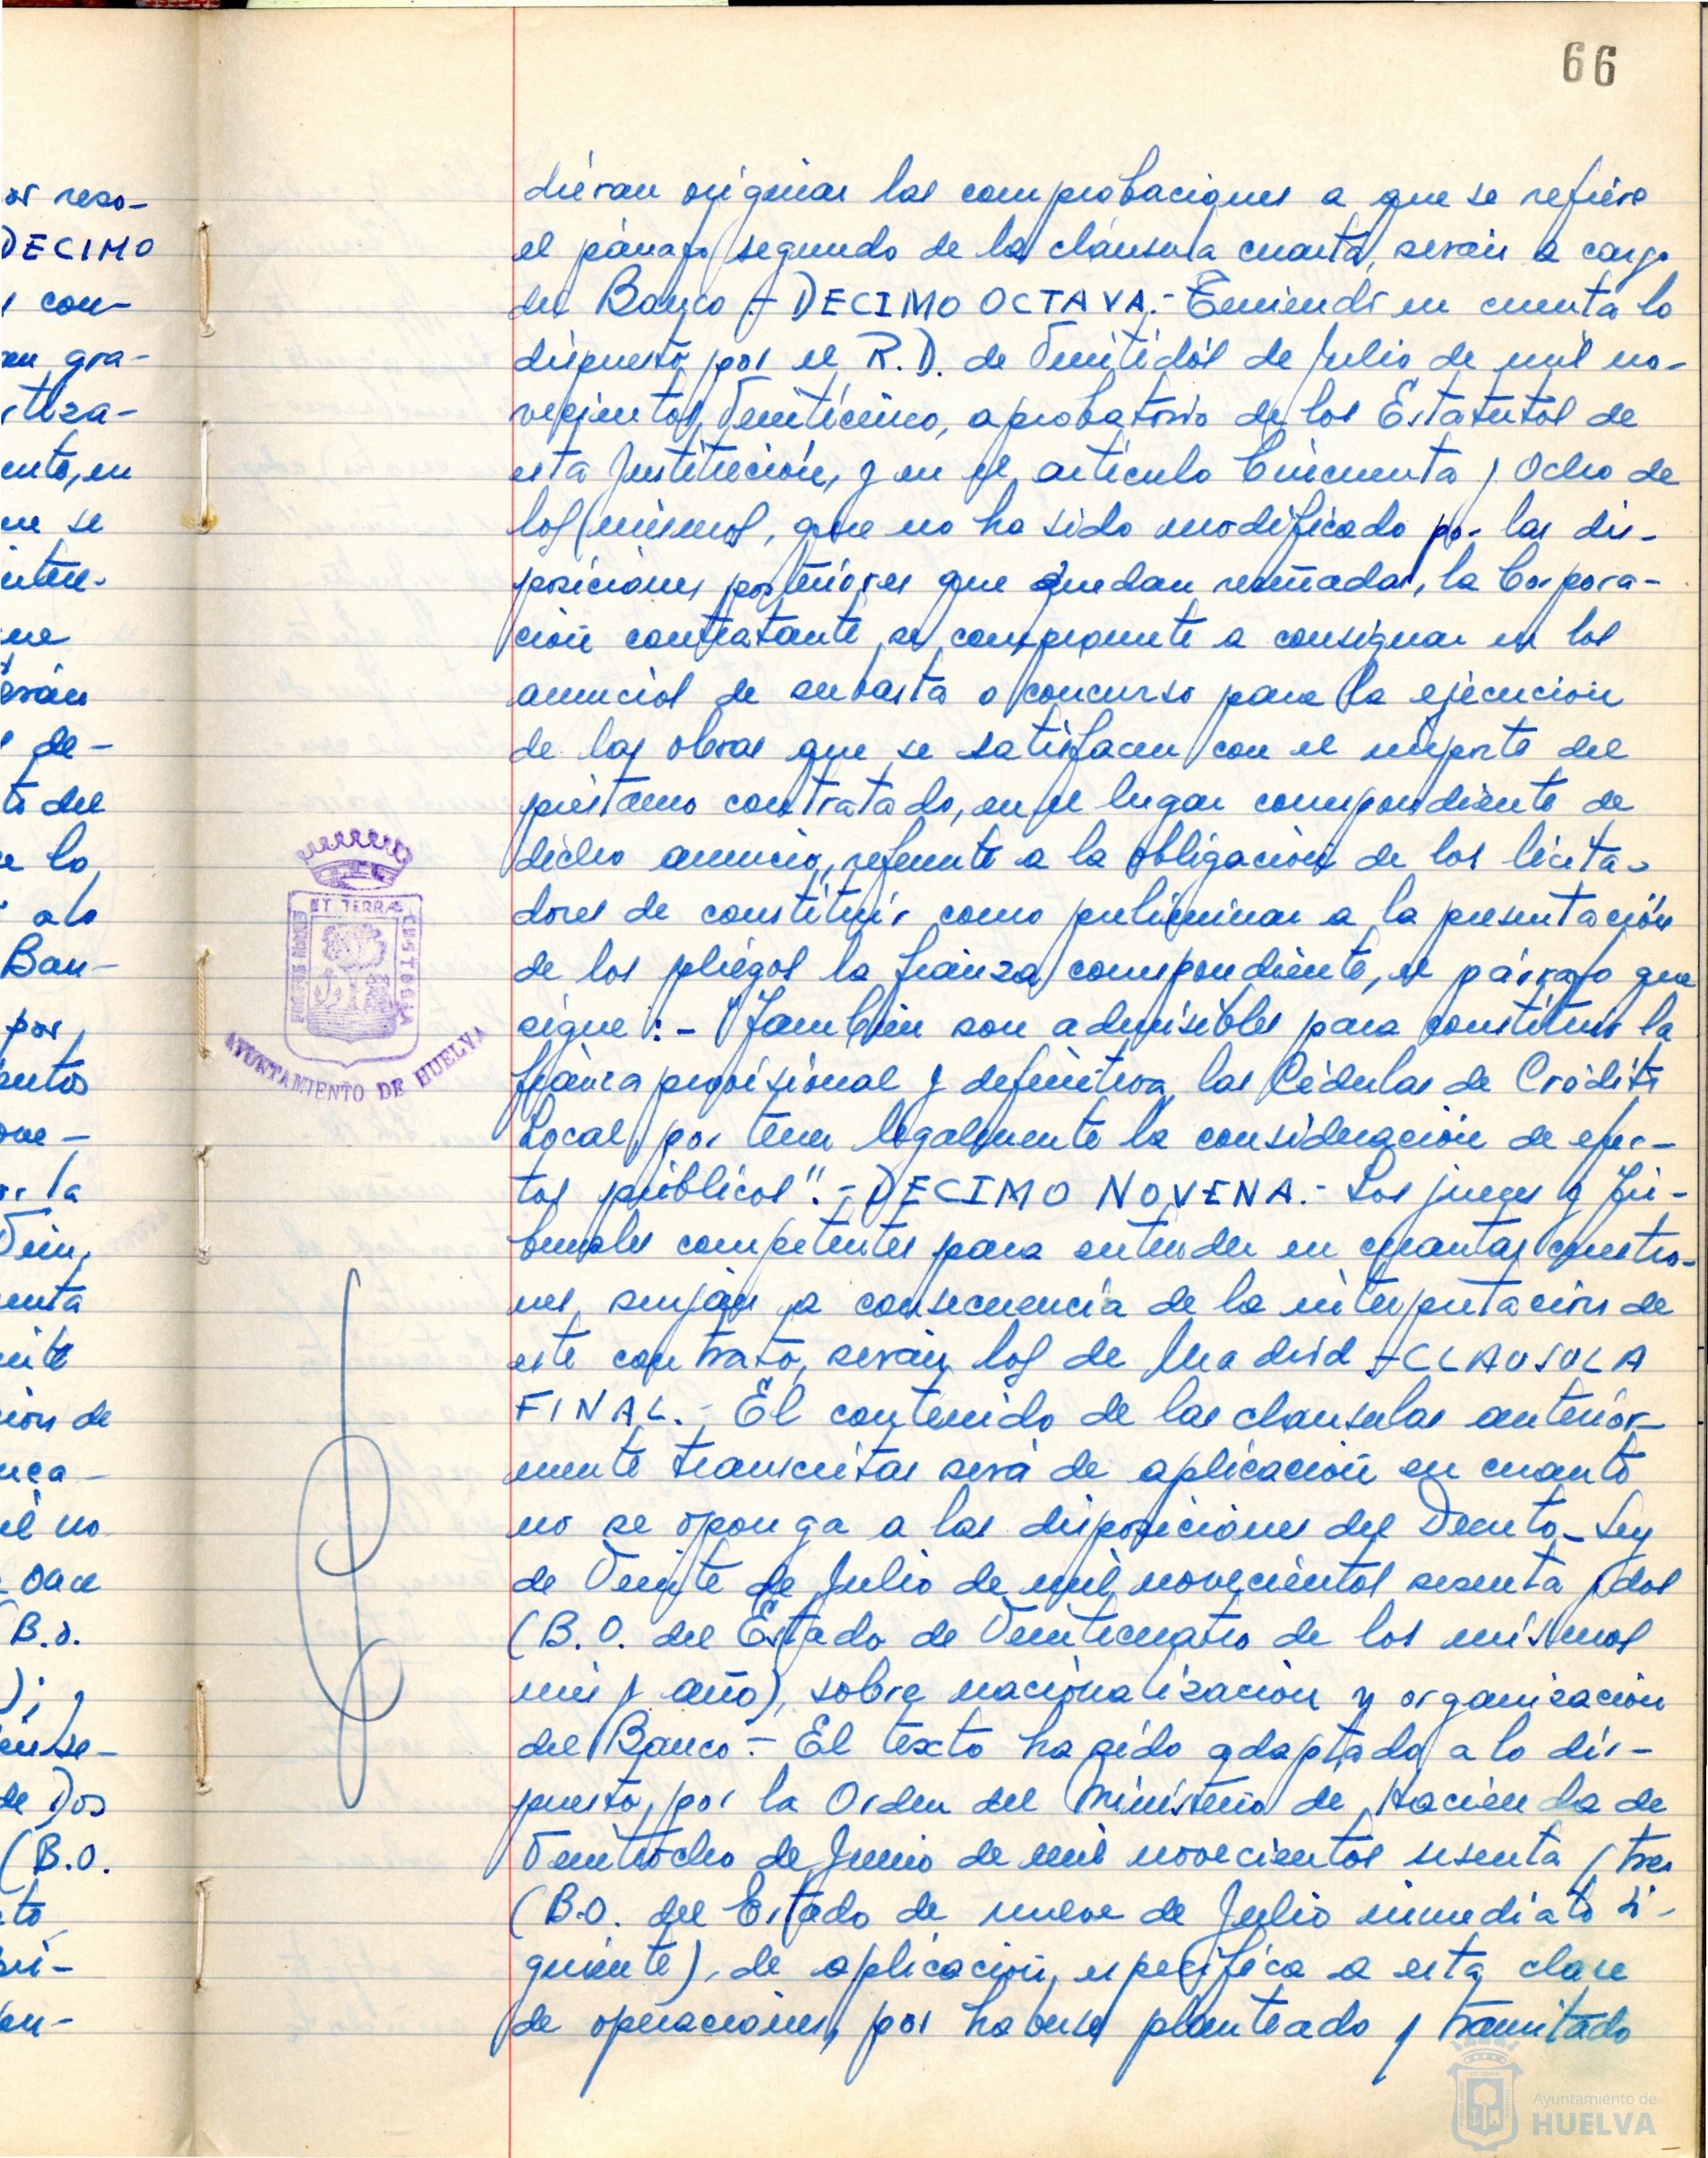 66
or reso-
DECIMO
s con-
en gra-
rtiza-
ento, en
ue se
inter-
ue
erán
s de-
to del
e lo
a lo
Ban-
por
entos
ove-
or la
Vein
enta
ente
ción de
nca-
il no
once
(B.O.
); y
en se-
de Dos
(B.O.
to
bi-
an-
dieran originar las comprobaciones a que se refiere
el párrafo segundo de la cláusula cuarta, serán a cargo
del Banco.- DECIMO OCTAVA.- Teniendo en cuenta lo
dispuesto por el R.D. de Veintidós de Julio de mil no-
vecientos Veinticinco, aprobatorio de los Estatutos de
esta Institución, y en el artículo Cincuenta y Ocho de
los mismos, que no ha sido modificado por las dis-
posiciones posteriores que quedan reseñadas, la Corpora-
ción contratante se compromete a consignar en los
anuncios de subasta o concurso para la ejecución
de las obras que se satisfacen con el importe del
préstamo contratado, en el lugar correspondiente de
dicho anuncio, referente a la obligación de los licita-
dores de constituir como preliminar a la presentación
de los pliegos la fianza correspondiente, el párrafo que
sigue:- "También son admisibles para constituir la
fianza provisional y definitiva las Cédulas de Crédito
Local, por tener legalmente la consideración de efec-
tos públicos".- DECIMO NOVENA.- Los jueces y Tri-
bunales competentes para entender en cuantas cuestio-
nes surjan a consecuencia de la interpretación de
este contrato, serán los de Madrid.- CLAUSULA
FINAL.- El contenido de las clausulas anterior-
mente transcritas será de aplicación en cuanto
no se oponga a las disposiciones del Decreto-Ley
de Veinte de Julio de mil novecientos sesenta y dos
(B.O. del Estado de Veinticuatro de los mismos
mes y año), sobre nacionalización y organización
del Banco.- El texto ha sido adaptado a lo dis-
puesto, por la Orden del Ministerio de Hacienda de
Veintiocho de Junio de mil novecientos sesenta y tres
(B.O. del Estado de nueve de Julio inmediato si-
guiente), de aplicación específica a esta clase
de operaciones, por haberse planteado y tramitado
ET TERRÆ
PORTUS MARIS
CUSTODIA
AYUNTAMIENTO DE HUELVA
Ayuntamiento de
HUELVA